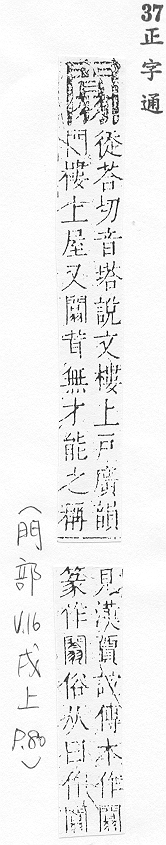 37 正字通
闒
從荅切音塔說文樓上戶廣韻
門樓上屋又闒茸無才能之稱
見漢賈誼傳本作
篆作闒俗从日作
(門部 V.16 戌上 P.80)